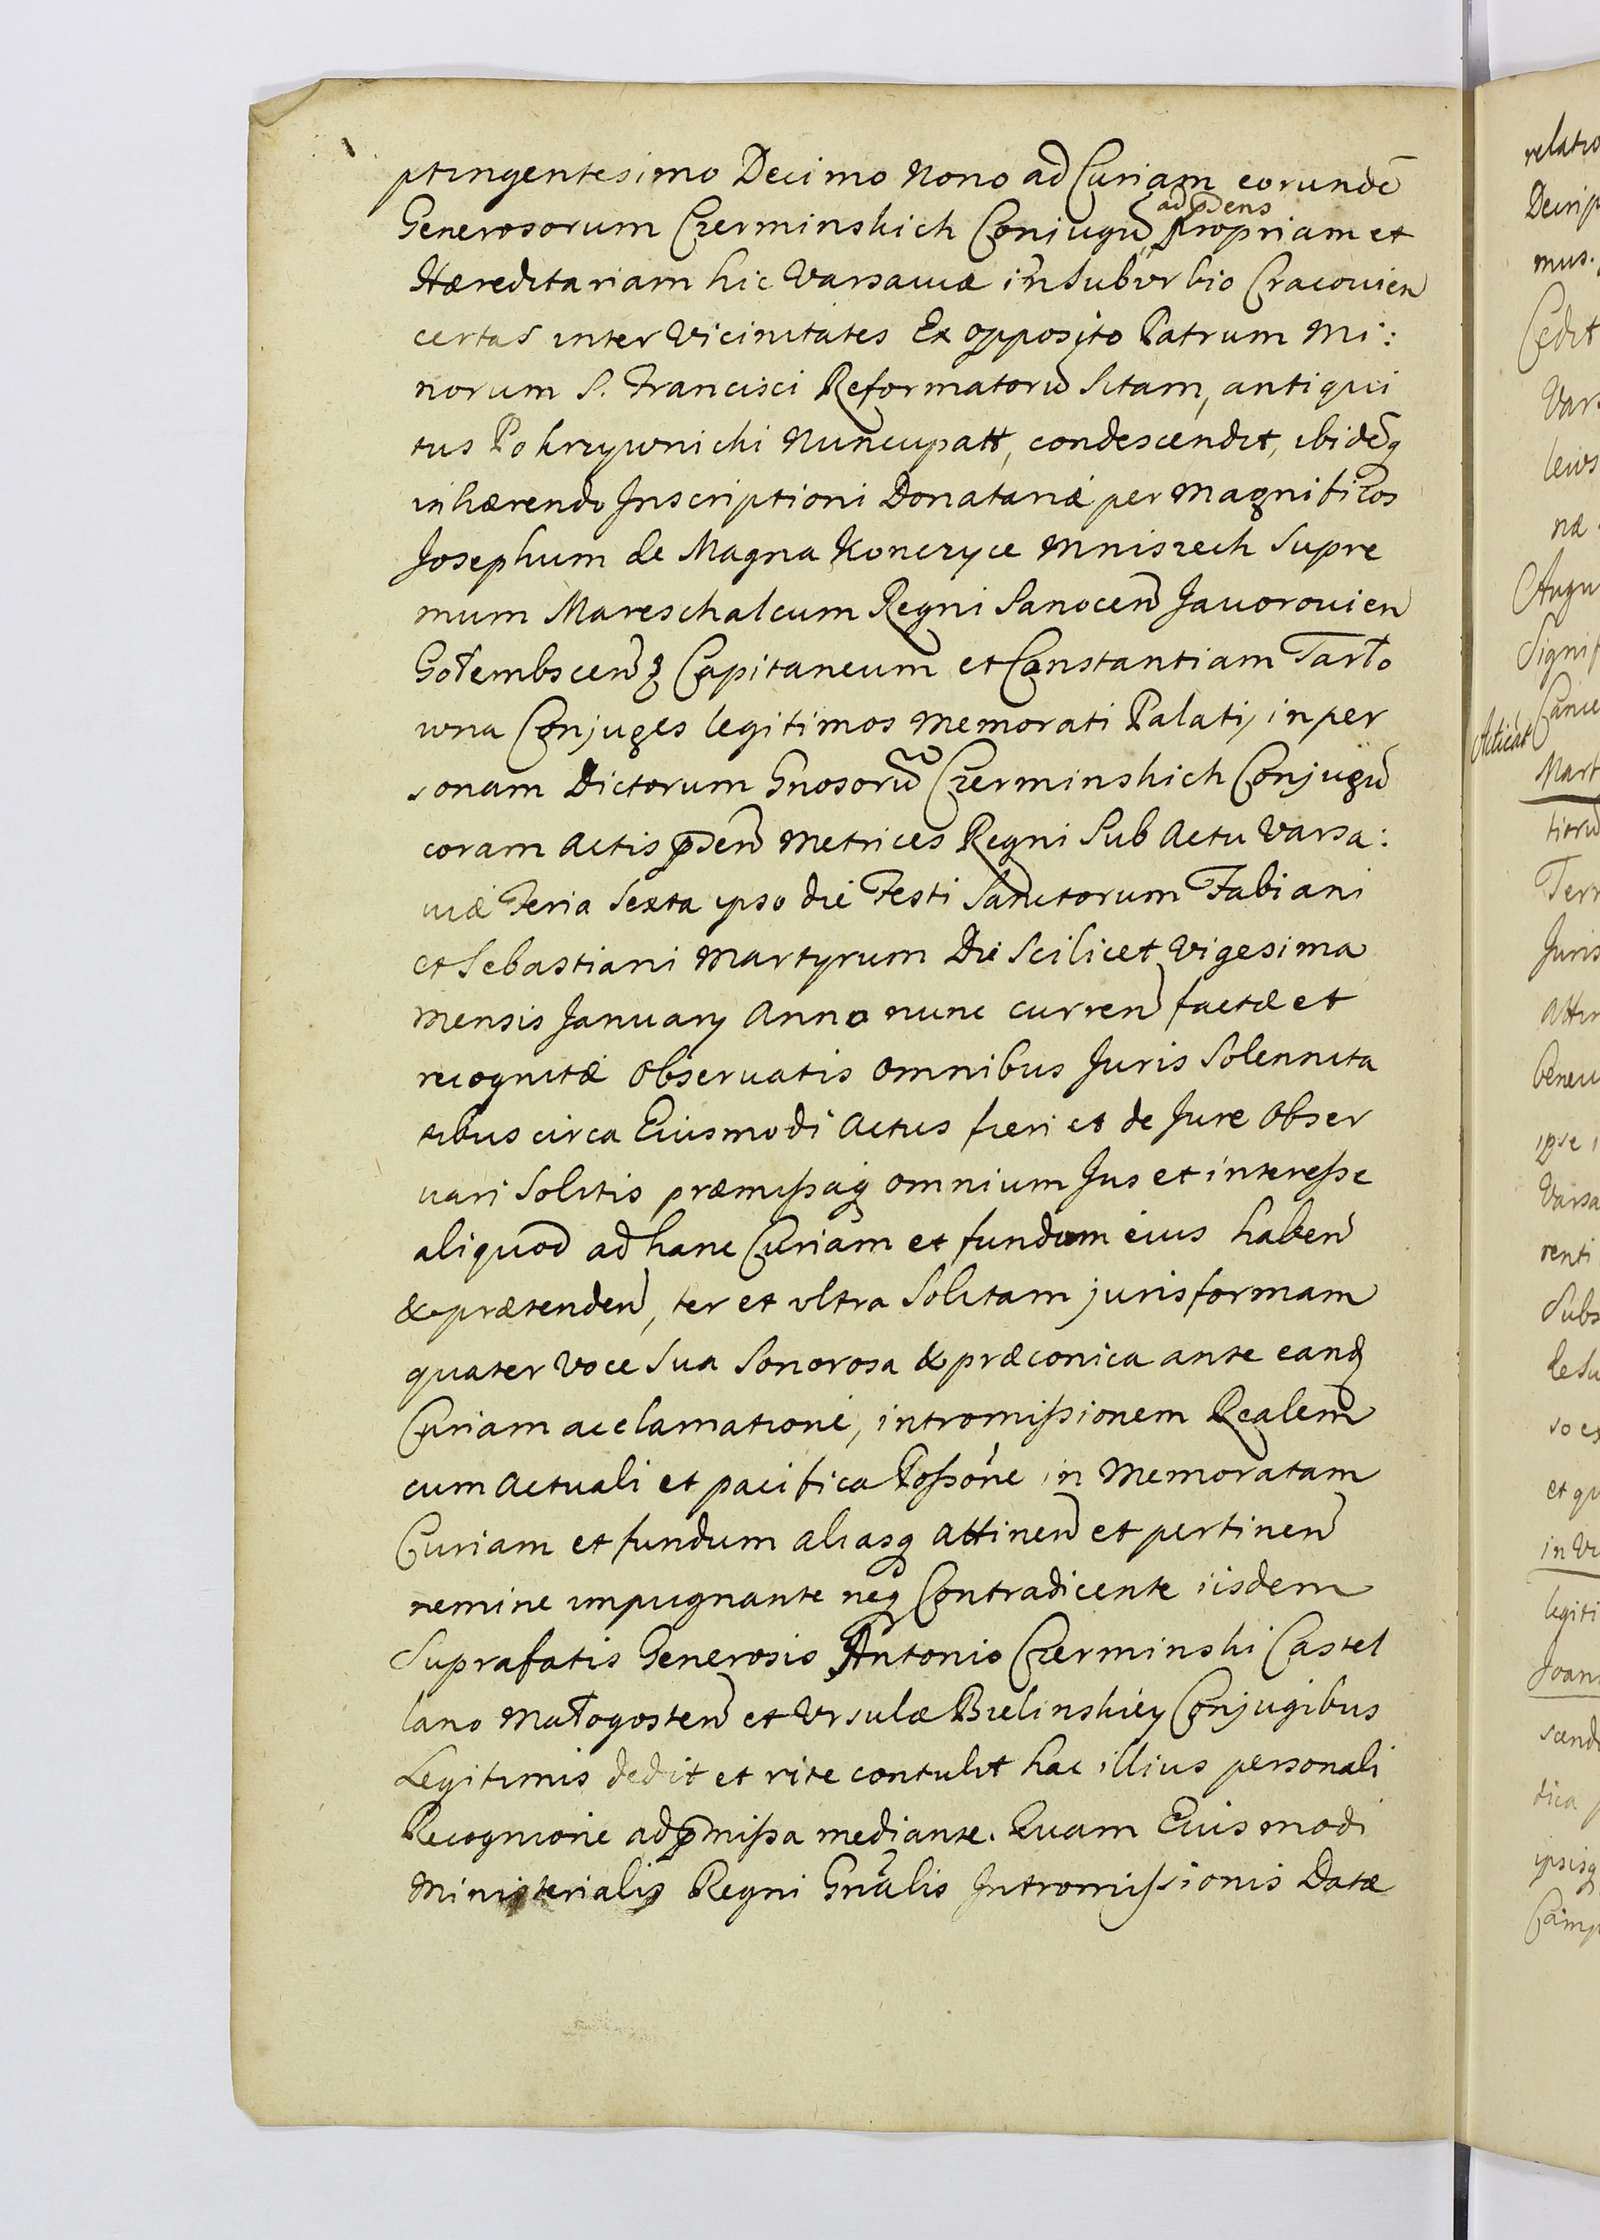 ptingentesimo Decimo Nono ad Curiam eorundē
ad p̄sens
Generosorum Czerminskich Coniugū propriam et
Hæreditariam hic Varsaviæ in Suburbio Cracovien
certas inter Vicinitates Ex opposito Patrum Mi:
norum S. Francisci Reformatorū Sitam, antiqui
tus Pokrzywnicki Nuncupatt, condescendit, ibidēq
inhærendo Inscriptioni Donatariæ per Magnificos
Josephum de Magna Konczyce Mniszech Supre
mum Mareschalcum Regni Sanocen Javorovien
Gołembscenq Capitaneum et Constantiam Tarło
wna Conjuges legitimos Memorati Palatij in per
sonam Dictorum Gnosorū Czerminskich Conjugū
coram Actis p̄sen Metrices Regni Sub Actu Varsa:
viæ Feria Sexta ipso die Festi Sanctorum Fabiani
et Sebastiani Martyrum Die Scilicet Vigesima
Mensis January Anno nunc curren factæ et
recognitæ Observatis Omnibus Juris Solennita
tibus circa Eiusmodi Actus fieri et de Jure Obser
vari Solitis præmissaq omnium Jus et interesse
aliquod ad hanc Curiam et fundum eius haben
& prætenden, ter et ultra Solitam juris formam
quater Voce Sua Sonorosa & præconica ante eandq
Curiam acclamatione, intromissionem Realem
cum Actuali et pacifica Possōne in Memoratam
Curiam et fundum aliasq Attinen et pertinen
nemine impugnante neq Contradicente iisdem
Suprafatis Generosis Antonio Czerminski Castel
lano Małogosten et Ursulæ Bielinskiey Conjugibus
Legitimis dedit et rite contulit hac illius personali
Recognīone ad p̄missa mediante. Quam Eiusmodi
Ministerialis Regni Gnālis Intromissionis Datæ
relatio
mus.
Cedit
Vars
næ
Augu
Signif
Cance
Mart
Terr
Juris
Attin
ipse
Varsa
renti
Subs
so ex
et qu
in Vi
legiti
Joan
dica
ipsisq